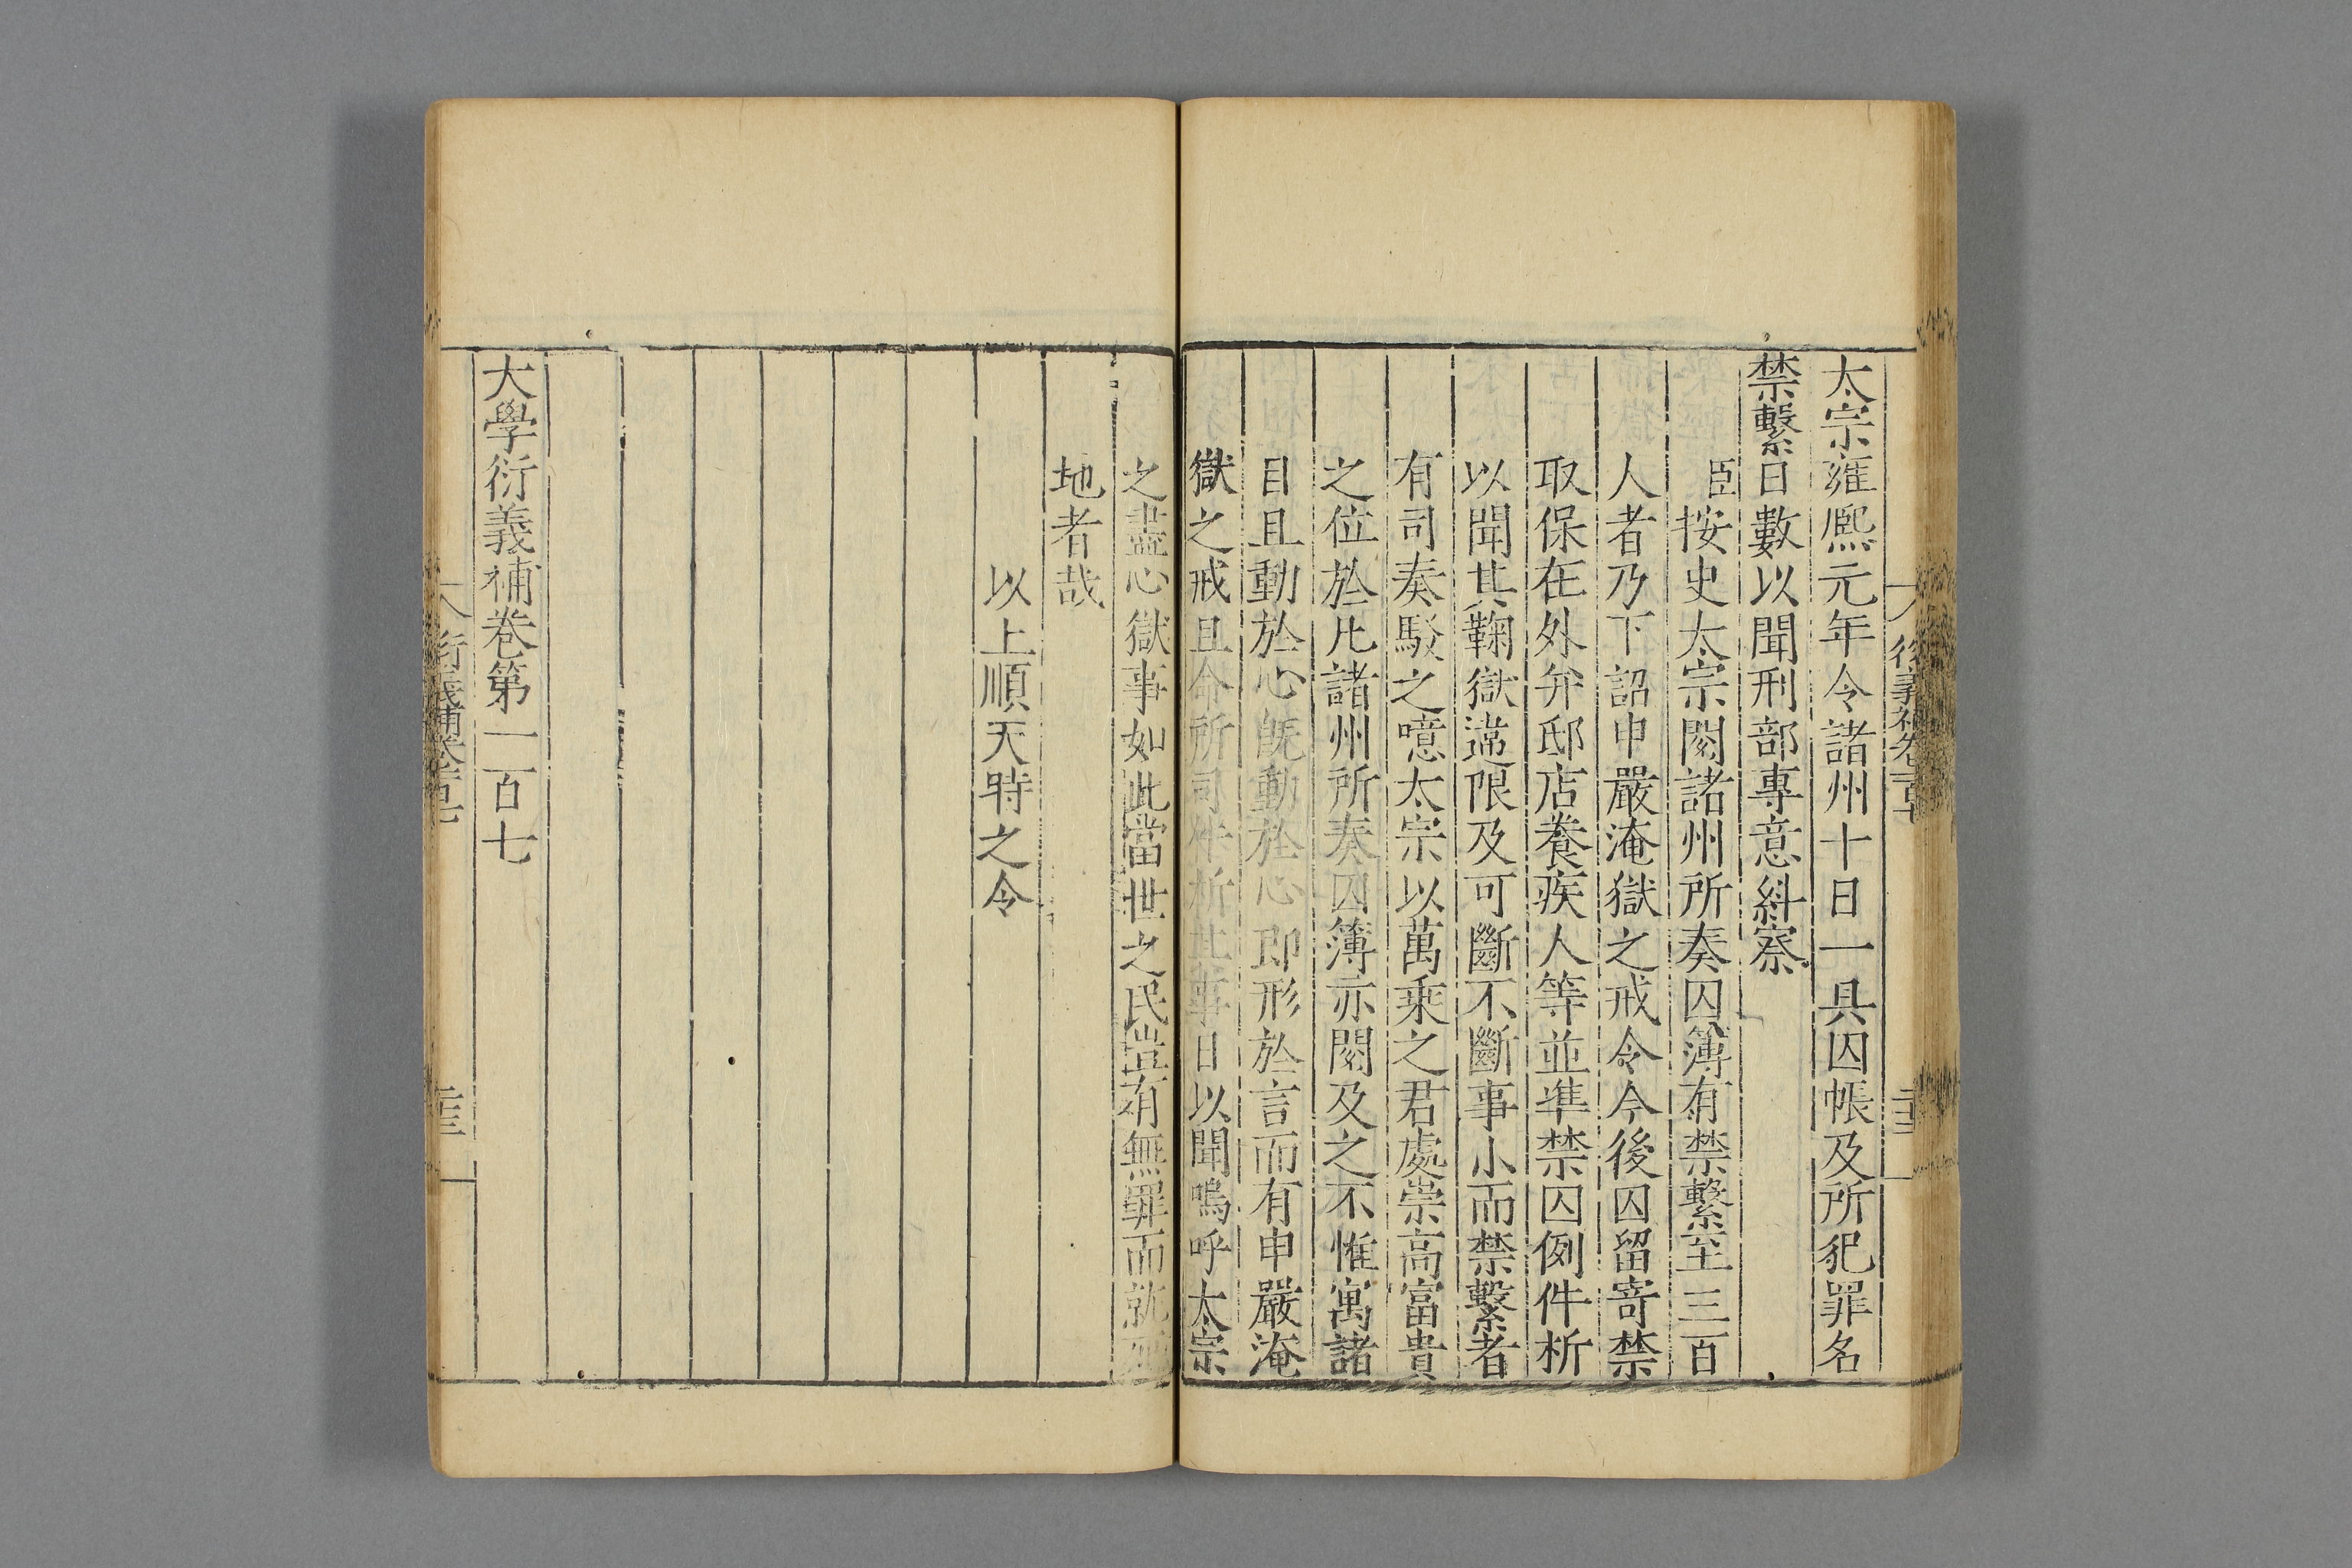 太宗雍熈元年令諸州十日一具囚帳及所犯罪名
禁繫日數以聞刑部專意糾察
臣按史太宗閱諸州所奏囚簿有禁繫至三百
人者乃下詔申嚴淹獄之戒令今後囚留寄禁
取保在外并邸店養疾人等並準禁囚例件析
以聞其鞠獄違限及可斷不斷事小而禁繫者
有司奏駁之噫太宗以萬乘之君處崇高富貴
之位於凡諸州所奏囚簿亦閱及之不惟寓諸
目且動於心旣動於心即形於言而有申嚴淹
獄之戒且命所司件析其事日以聞嗚呼太宗
之盡心獄事如此當世之民豈有無罪而就死
地者哉
以上順天時之令
大學衍義補卷第一百七